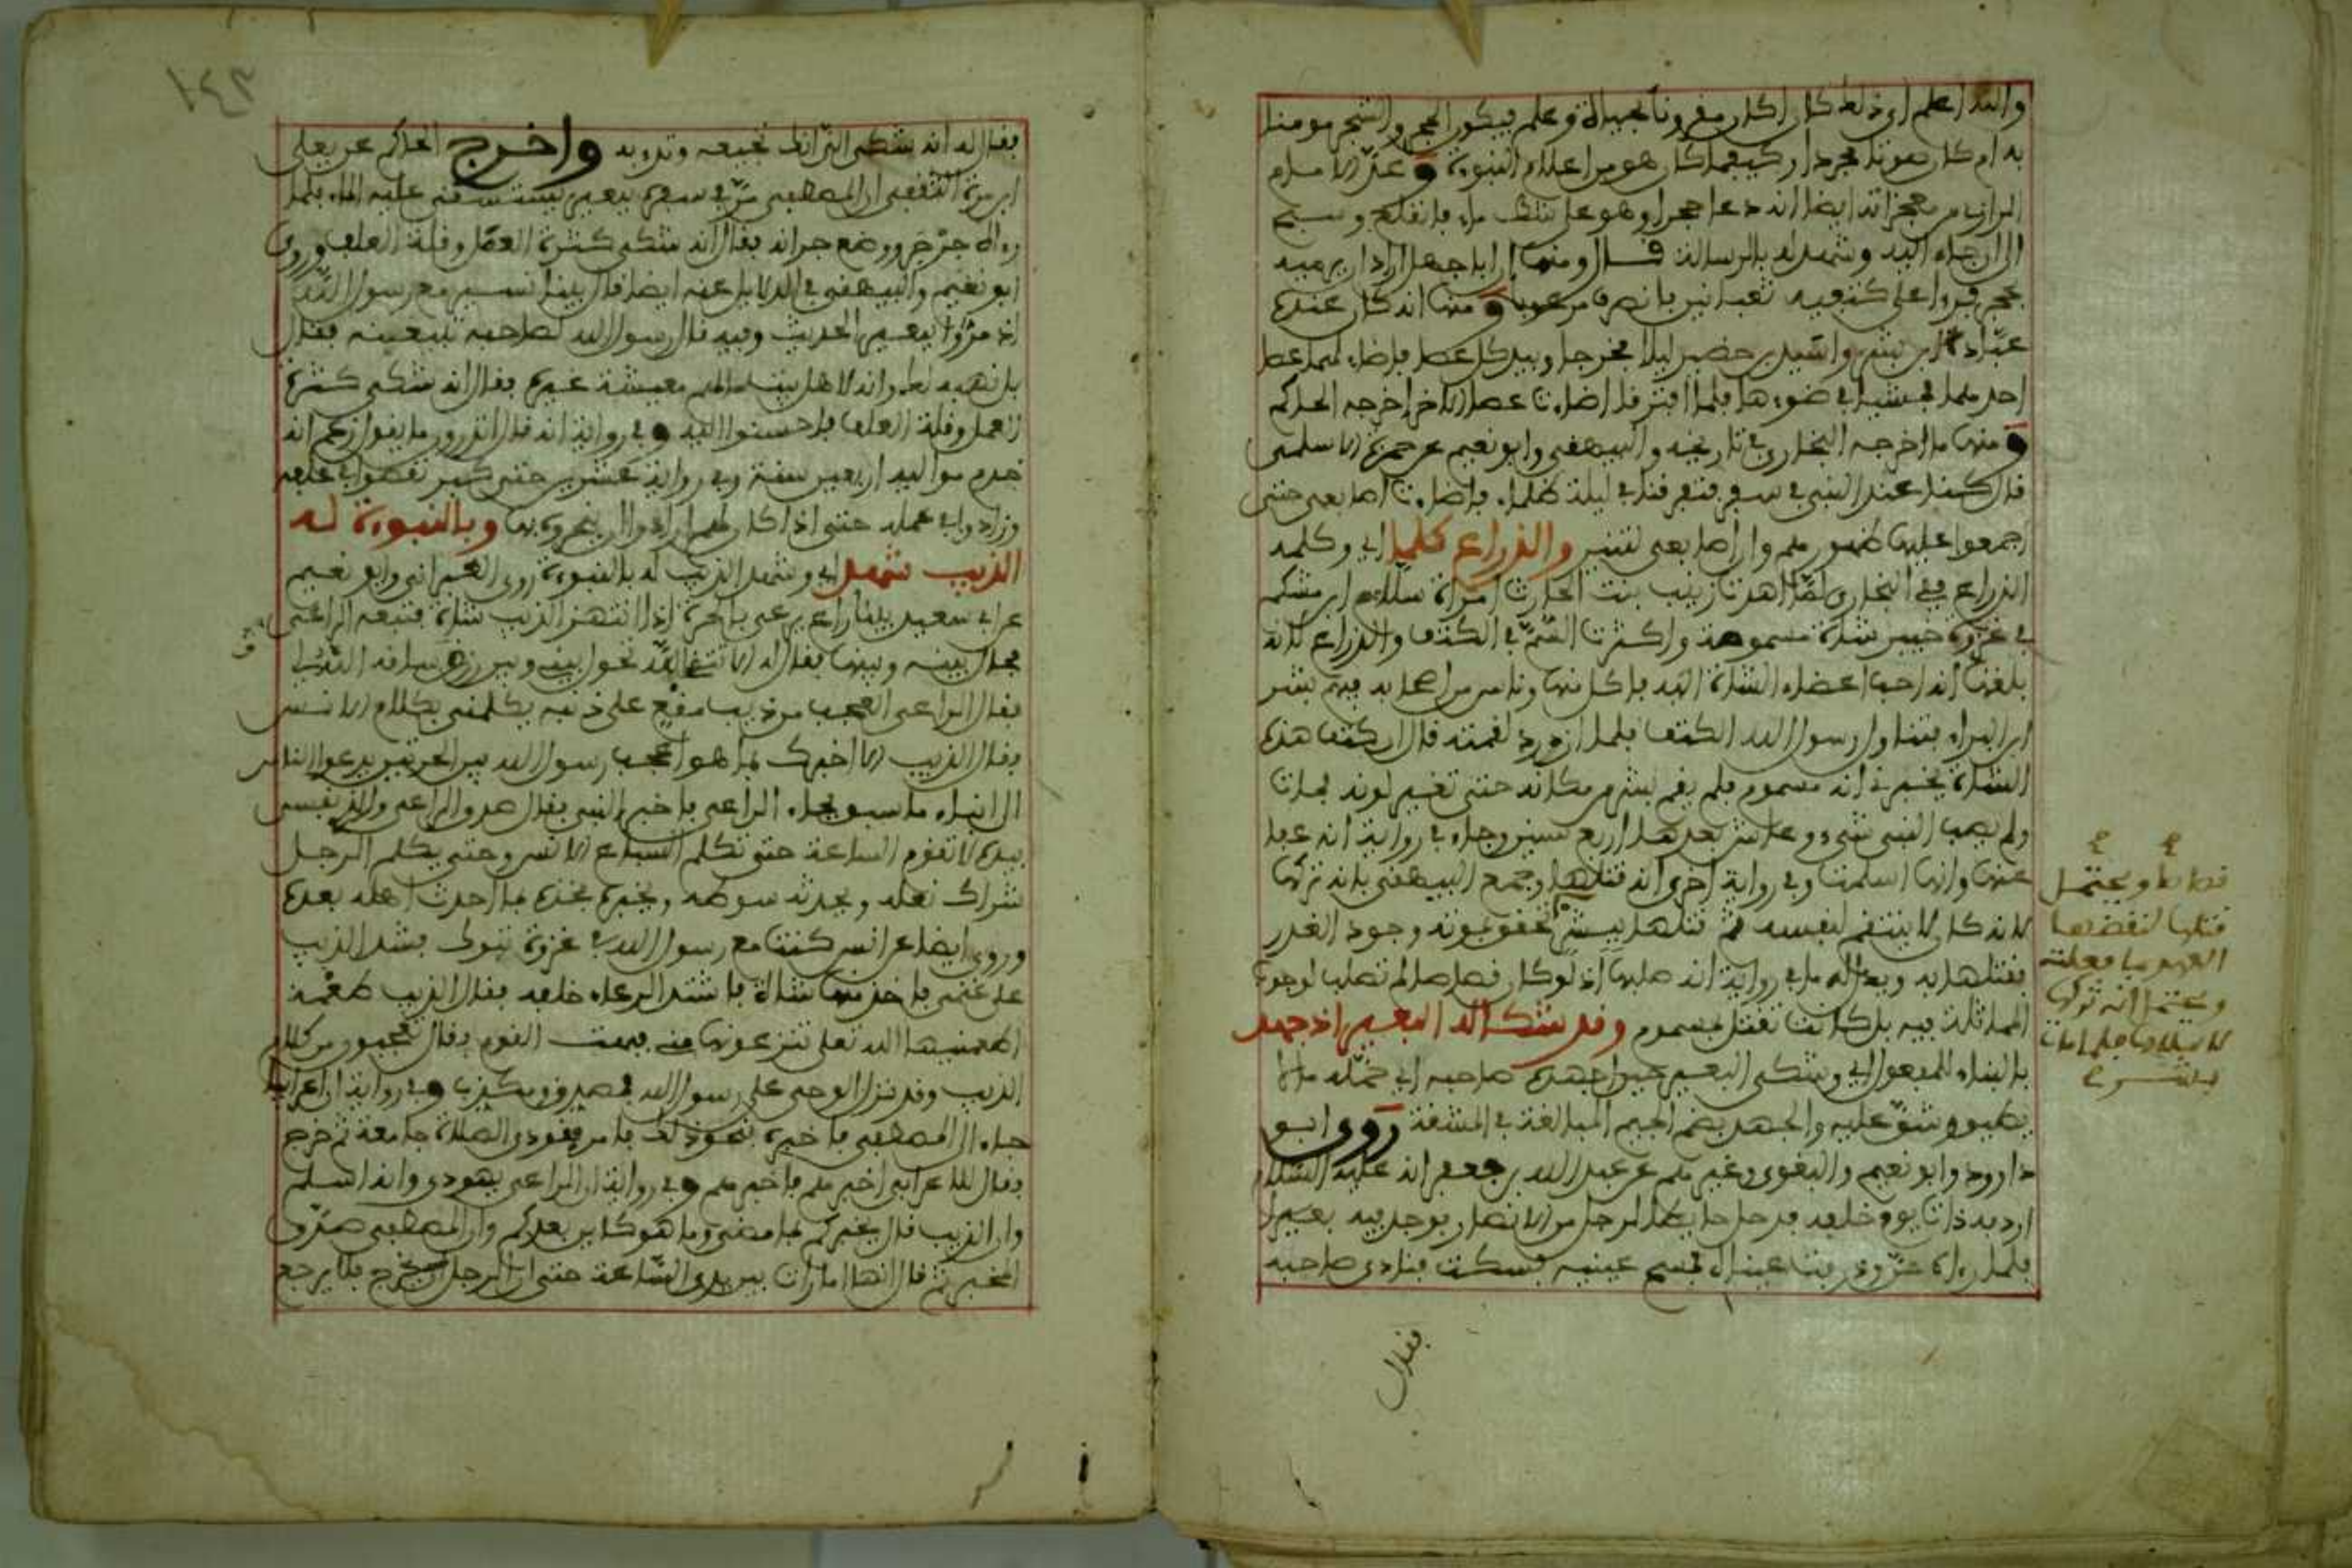 والله اعلم اي ذلك كان اكان مقرونا بحياة وعلم فيكون الحجر والشجر مومنا
به ام كان صوتا مجردا وكيفما كان هو من اعلام النبوة وعد الامام
الرازي من معجزاته ايضا انه دعا حجرا وهو على شط ماء فانقلع وسبح
الى ان جاء اليه وشهد له بالرسالة قال ومنها ان ابا جهل اراد ان يرميه
بحجر فراى على كتفيه ثعبانين فانصرف مرعوبا ومنها انه كان عنده
عباد ابن بشر واسيد بن حضير ليلا فخرجا وبيد كل عصا فاضاء لهما عصا
احدهما فمشيا في ضوءها فلما افترقا اضاءت عصا الاخر اخرجه الحاكم
ومنها ما اخرجه البخاري في تاريخه والبيهقي وابو نعيم عن حمزة الاسلمي
قال كنا عند النبي في سفر فتفرقنا في ليلة ظلماء فاضاءت اصابعي حتى
اجمعوا عليها ظهورهم وان اصابعي لتنير والذراع كلما اي وكلمه
الذراع ففي البخاري لما اهدت زينب بنت الحارث امراة سلام ابن مشكم
في غزوة خيبر شاة مسمومة واكثرت السم في الكتف والذراع لانه
بلغها انه احب اعضاء الشاة اليه فاكل منها وناس من اصحابه فيهم بشر
ابن البراء فتناول رسول الله الكتف فلما ازدرد لقمته قال ان كتف هذه
الشاة يخبرني انه مسموم فلم يقم بشر من مكانه حتى تغير لونه فمات
ولم يصب النبي شيء وعاش بعدها اربع سنين وجاء في رواية انه عفا
عنها وانها اسلمت وفي رواية اخرى انه قتلها وجمع البيهقي بانه تركها
لانه كان لا ينتقم لنفسه ثم قتلها ببشر لتحقق بموته وجود الغدر
فقتلها به ويدل له ما في رواية انه صلبها اذ لو كان قصاصا لم تصلب لوجوب
المماثلة فيه بل كانت تقتل بمسموم وقد شكا له البعير اذ جهد
بالبناء للمفعول اي وشكى البعير حين اجهده صاحبه اي حمله ما لا
يطيق وشق عليه والجهد بضم الجيم المبالغة في المشقة روى ابو
داوود وابو نعيم والبغوي وغيرهم عن عبد الله بن جعفر انه عليه السلام
اردفه ذات يوم خلفه فدخل حايطا لرجل من الانصار فوجد فيه بعيرا
فلما رءاه حن وذرفت عيناه فمسح عينيه فسكت فنادى صاحبه
فقال
قصاصا ويحتمل
قتلها لنقضها
العهد بما فعلت
ويحتمل انه تركها
لاسلامها فلما مات
بشر
١٤٣
فقال له انه شكى الي انك تجيعه وتدءبه واخرج الحاكم عن يعلى
ابن مرة الثقفي ان المصطفى مر في سفره ببعير يستسقى عليه الماء فلما
رءاه جرجر ووضع جرانه فقال انه شكى كثرة العمل وقلة العلف وروى
ابو نعيم والبيهقي في الدلايل عنه ايضا قال بينا نسير مع رسول الله
اذ مروا ببعير الحديث وفيه قال رسول الله لصاحبه تبيعنيه فقال
بل نهبه لك وانه لاهل بيت ما لهم معيشة غيره فقال انه شكى كثرة
العمل وقلة العلف فاحسنوا اليه وفي رواية انه قال اتدرون ما يقول زعم انه
خدم مواليه اربعين سنة وفي رواية عشرين حتى كبر نقصوا في علفه
وزادوا في عمله حتى اذا كان لهم ارادوا ان ينحروه بها وبالنبوة له
الذيب شهد اي وشهد الذيب له بالنبوة روى الطبراني وابو نعيم
عن ابي سعيد بينا راع يرعى بالحرة اذ انتهز الذيب شاة فتبعه الراعي
فحال بينه وبينها فقال له الا تتق الله تحول بيني وبين رزق ساقه الله الي
فقال الراعي العجب من ذيب مقع على ذنبه يكلمني بكلام الانس
فقال الذيب الا اخبرك بما هو اعجب رسول الله بين الحرتين يدعو الناس
الى انباء ما سبق فجاء الراعي فاخبر النبي فقال صدق الراعي والذي نفسي
بيده لا تقوم الساعة حتى تكلم السباع الانس وحتى يكلم الرجل
شراك نعله ويحدثه سوطه ويخبره فخذه بما احدث اهله بعده
وروى ايضا عن انس كنت مع رسول الله في غزوة تبوك فشد الذيب
على غنمي فاخذ منها شاة فاشتد الرعاء خلفه فقال الذيب طعمة
اطعمنيها الله تعلى تنزعونها مني فبهت القوم فقال تعجبون من كلام
الذيب وقد نزل الوحي على رسول الله فمصدق ومكذب وفي رواية ان اعرابيا
جاء الى المصطفى فاخبره بنحو ذلك فامر فنودي الصلاة جامعة ثم خرج
فقال للاعرابي اخبرهم فاخبرهم وفي رواية ان الراعي يهودي وانه اسلم
وان الذيب قال يخبركم بما مضى وما هو كاين بعدكم وان المصطفى صدق
الخبر ثم قال انها امارات بين يدي الساعة حتى ان الرجل ليخرج فلا يرجع